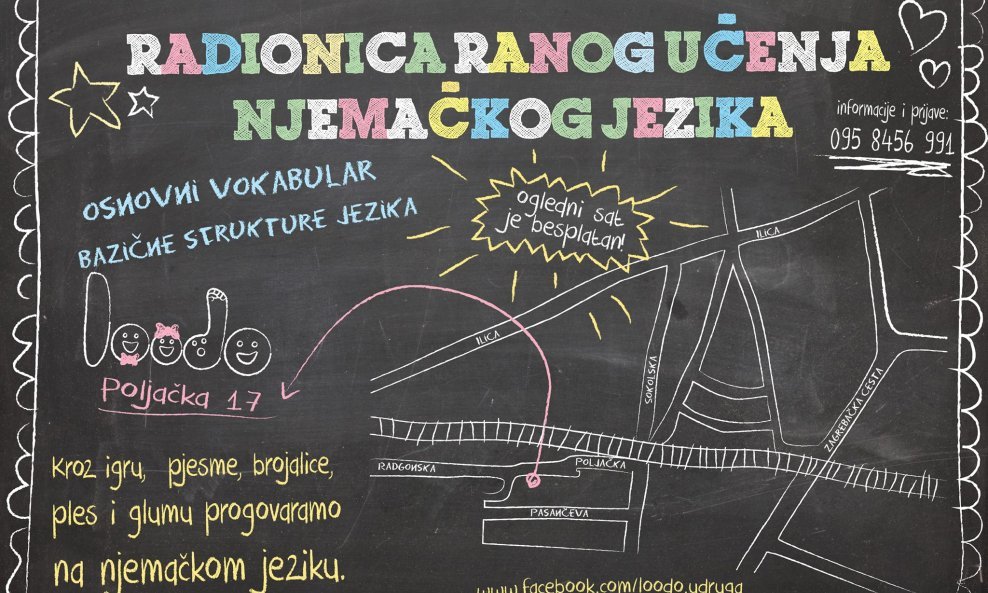 RADIONICA RANOG UČENJA
NJEMAČKOG JEZIKA
informacije i prijave:
095 8456 991
OSNOVNI VOKABULAR
BAZIČNE STRUKTURE JEZIKA
ogledni sat
je besplatan!
loodo
Poljačka 17
Kroz igru, pjesme, brojalice,
ples i glumu progovaramo
na njemačkom jeziku.
ILICA
ILICA
SOKOLSKA
ZAGREBAČKA CESTA
RADGONSKA
POLJAČKA
PASANČEVA
www.facebook.com/loodo.udruga